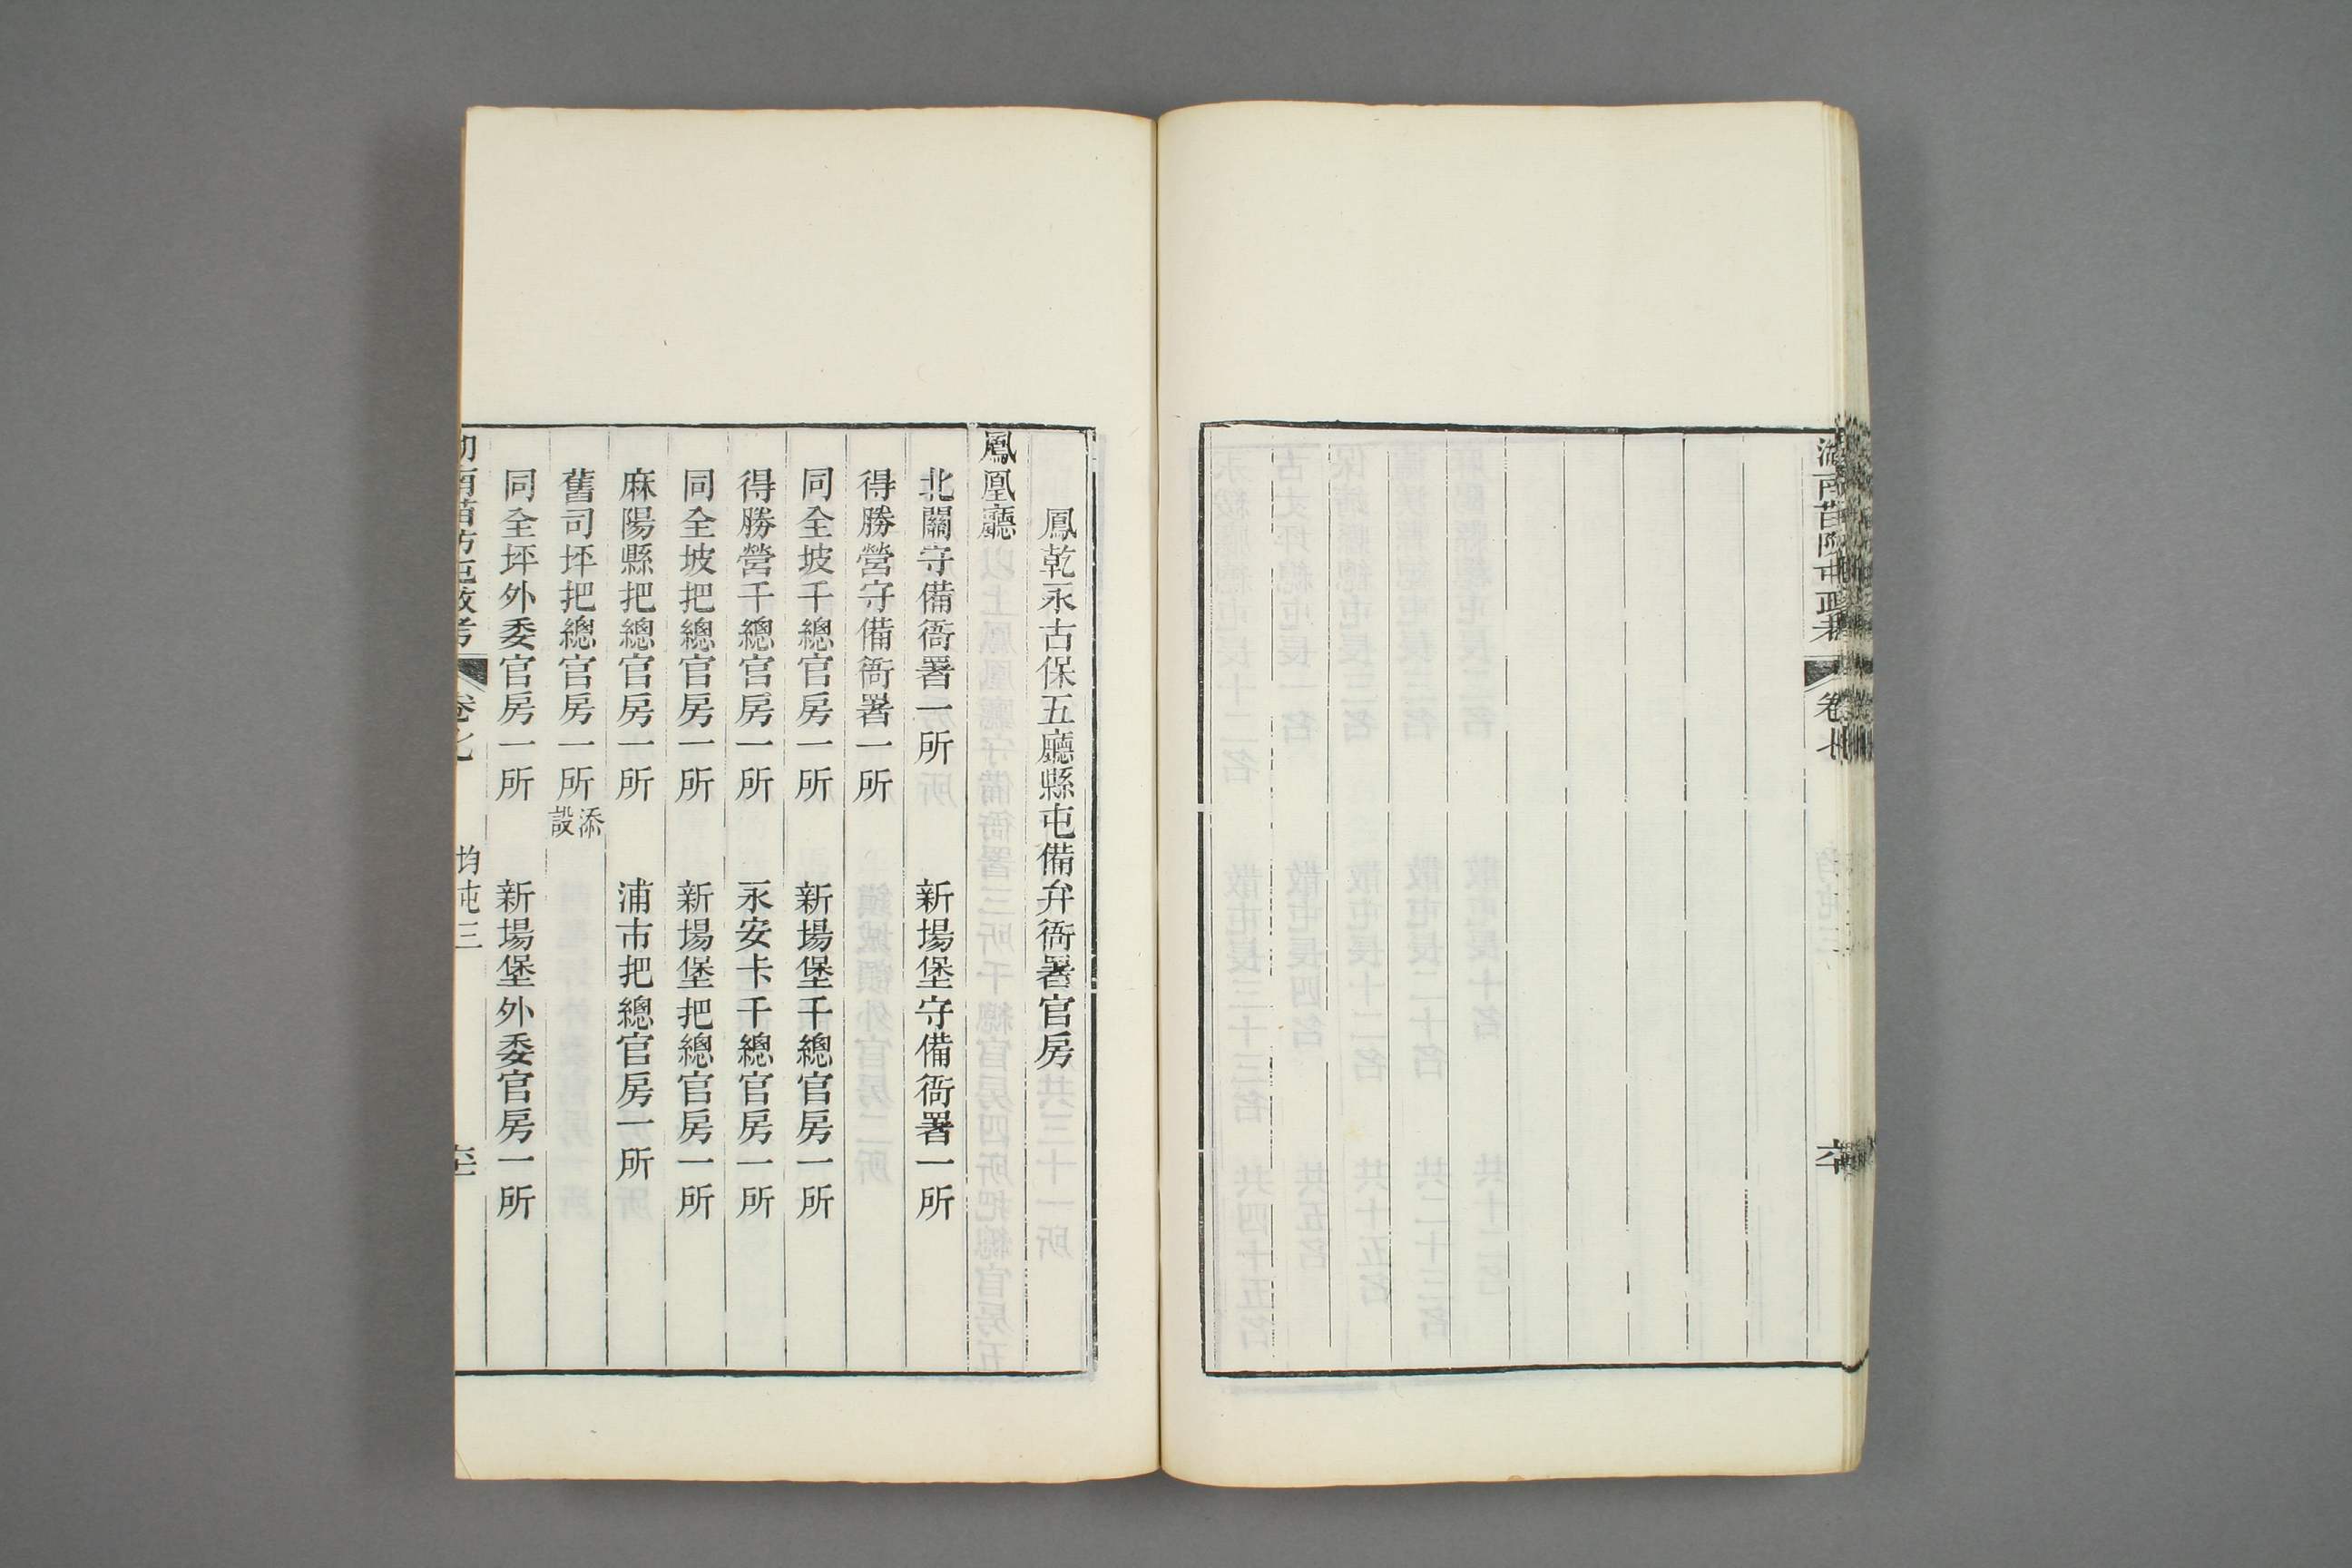 湖南苗防屯政考
卷七
鳳乾永古保五廳縣屯備弁衙署官房
鳳凰廳
北關守備衙署一所　新場堡守備衙署一所
得勝營守備衙署一所
同全坡千總官房一所　新場堡千總官房一所
得勝營千總官房一所　永安卡千總官房一所
同全坡把總官房一所　新場堡把總官房一所
麻陽縣把總官房一所　浦市把總官房一所
舊司坪把總官房一所添設
同全坪外委官房一所　新場堡外委官房一所
湖南苗防屯政考
卷七
均屯三